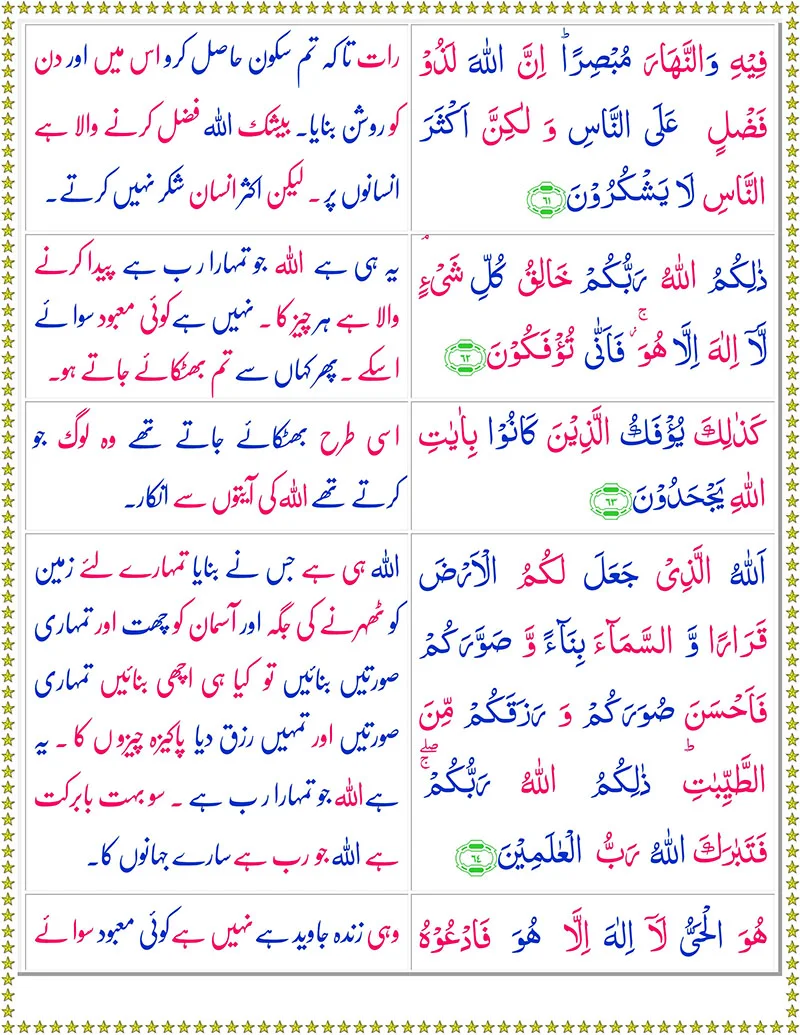 فِیْهِ وَالنَّهَارَ مُبْصِرًا ؕ اِنَّ اللّٰهَ لَذُوْ
فَضْلٍ عَلَی النَّاسِ وَ لٰكِنَّ اَكْثَرَ
النَّاسِ لَا یَشْكُرُوْنَ ﴿٦١﴾
رات تاکہ تم سکون حاصل کرو اس میں اور دن
کو روشن بنایا۔ بیشک اللہ فضل کرنے والا ہے
انسانوں پر۔ لیکن اکثر انسان شکر نہیں کرتے۔
ذٰلِكُمُ اللّٰهُ رَبُّكُمْ خَالِقُ كُلِّ شَیْءٍ ۘ
لَاۤ اِلٰهَ اِلَّا هُوَ ۚ فَاَنّٰی تُؤْفَكُوْنَ ﴿٦٢﴾
یہ ہی ہے اللہ جو تمہارا رب ہے پیدا کرنے
والا ہے ہر چیز کا۔ نہیں ہے کوئی معبود سوائے
اسکے۔ پھر کہاں سے تم بھٹکائے جاتے ہو۔
كَذٰلِكَ یُؤْفَكُ الَّذِیْنَ كَانُوْا بِاٰیٰتِ
اللّٰهِ یَجْحَدُوْنَ ﴿٦٣﴾
اسی طرح بھٹکائے جاتے تھے وہ لوگ جو
کرتے تھے اللہ کی آیتوں سے انکار۔
اَللّٰهُ الَّذِیْ جَعَلَ لَكُمُ الْاَرْضَ
قَرَارًا وَّ السَّمَآءَ بِنَآءً وَّ صَوَّرَكُمْ
فَاَحْسَنَ صُوَرَكُمْ وَ رَزَقَكُمْ مِّنَ
الطَّیِّبٰتِ ؕ ذٰلِكُمُ اللّٰهُ رَبُّكُمْ ۖۚ
فَتَبٰرَكَ اللّٰهُ رَبُّ الْعٰلَمِیْنَ ﴿٦٤﴾
اللہ ہی ہے جس نے بنایا تمہارے لئے زمین
کو ٹھہرنے کی جگہ اور آسمان کو چھت اور تمہاری
صورتیں بنائیں تو کیا ہی اچھی بنائیں تمہاری
صورتیں اور تمہیں رزق دیا پاکیزہ چیزوں کا۔ یہ
ہے اللہ جو تمہارا رب ہے۔ سو بہت بابرکت
ہے اللہ جو رب ہے سارے جہانوں کا۔
هُوَ الْحَیُّ لَاۤ اِلٰهَ اِلَّا هُوَ فَادْعُوْهُ
وہی زندہ جاوید ہے نہیں ہے کوئی معبود سوائے